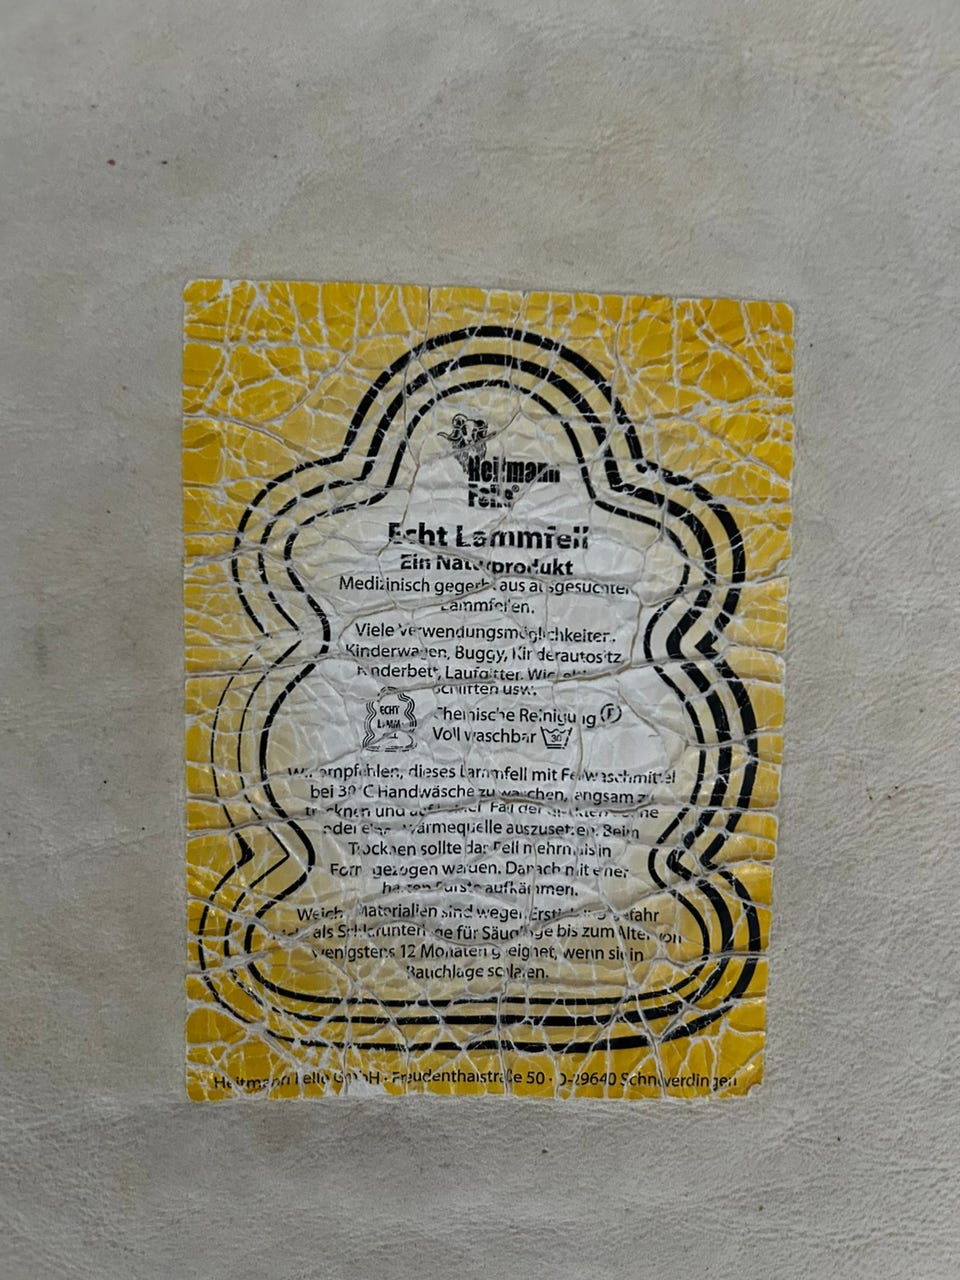 Heitmann
Felle®
Echt Lammfell
Ein Naturprodukt
Medizinisch gegerbt aus ausgesuchten
Lammfellen.
Viele Verwendungsmöglichkeiten.
Kinderwagen, Buggy, Kinderautositz
Kinderbett, Laufgitter, Wickel
Schlitten usw.
ECHT
LAMM
Chemische Reinigung F
Voll waschbar 30
Wir empfehlen, dieses Lammfell mit Fellwaschmittel
bei 30°C Handwäsche zu waschen, langsam zu
trocknen und auf keinen Fall der direkten Sonne
oder einer Wärmequelle auszusetzen. Beim
Trocknen sollte das Fell mehrmals in
Form gezogen werden. Danach mit einer
harten Bürste aufkämmen.
Weiche Materialien sind wegen Erstickungsgefahr
nicht als Schlafunterlage für Säuglinge bis zum Alter von
wenigstens 12 Monaten geeignet, wenn sie in
Bauchlage schlafen.
Heitmann Felle GmbH · Freudenthalstraße 50 · D-29640 Schneverdingen